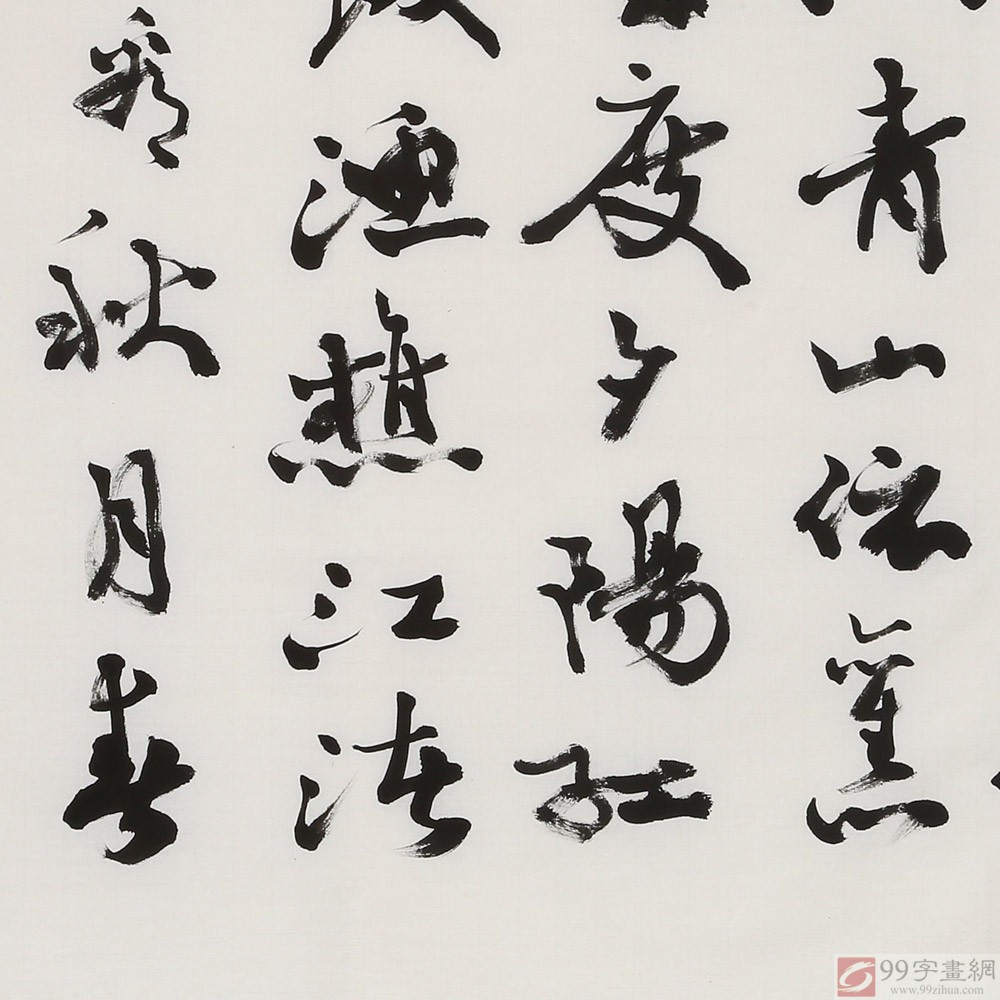 青山依舊
度夕陽紅
漁樵江渚
看秋月春
99字畫網
www.99zihua.com